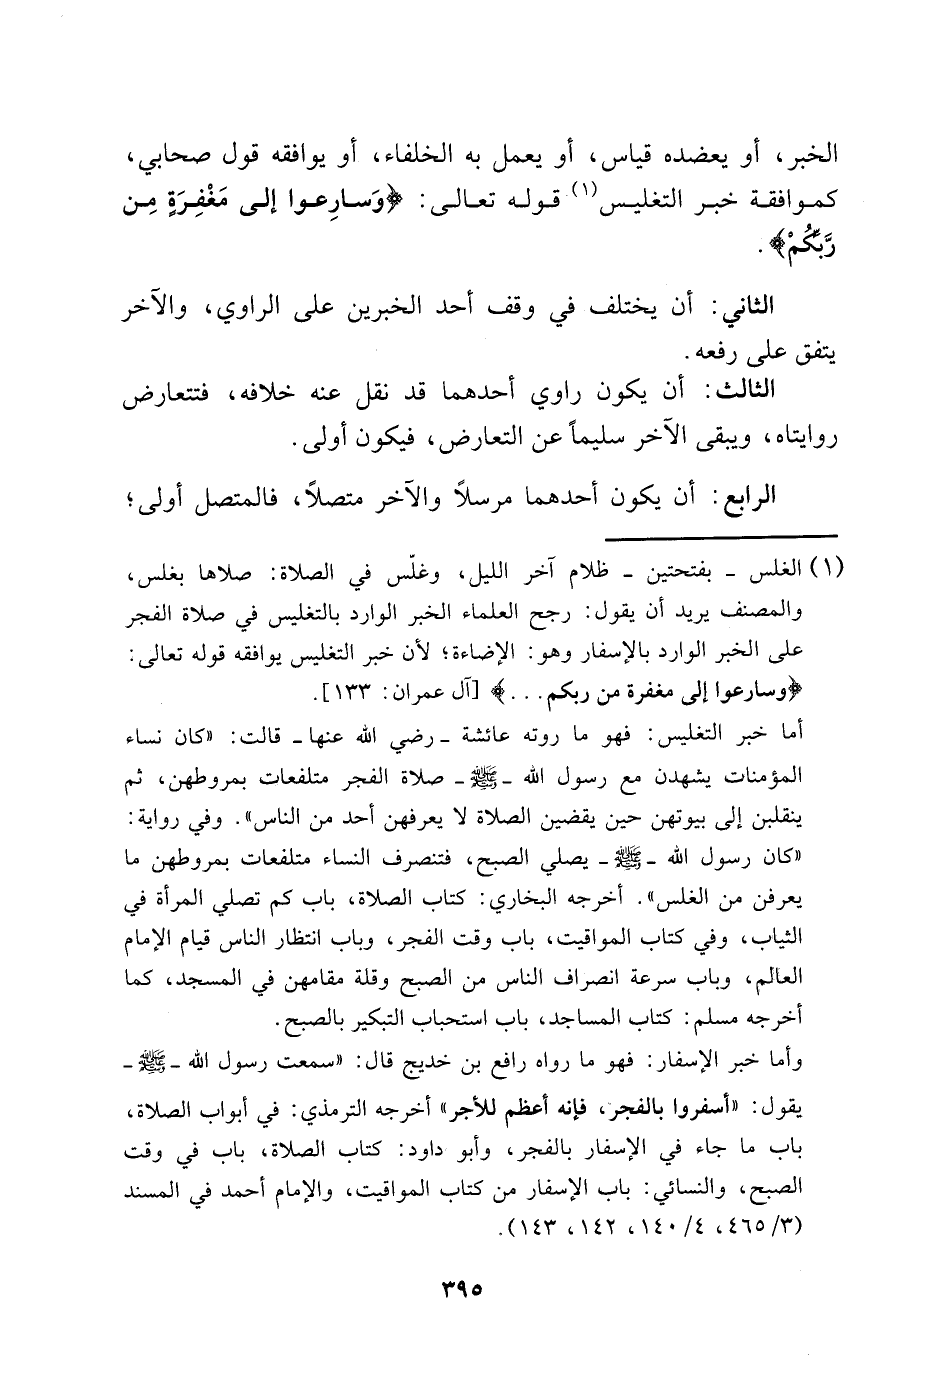 الخبر، أو يعضده قياس، أو يعمل به الخلفاء، أو يوافقه قول صحابي،
كموافقة خبر التغليس(١) قوله تعالى: ﴿وَسارِعوا إلى مَغْفِرَةٍ مِن
رَّبِّكُمْ﴾.
الثاني: أن يختلف في وقف أحد الخبرين على الراوي، والآخر
يتفق على رفعه.
الثالث: أن يكون راوي أحدهما قد نقل عنه خلافه، فتتعارض
روايتاه، ويبقى الآخر سليماً عن التعارض، فيكون أولى.
الرابع: أن يكون أحدهما مرسلاً والآخر متصلاً، فالمتصل أولى؛
(١) الغلس - بفتحتين - ظلام آخر الليل، وغلّس في الصلاة: صلاها بغلس،
والمصنف يريد أن يقول: رجح العلماء الخبر الوارد بالتغليس في صلاة الفجر
على الخبر الوارد بالإسفار وهو: الإضاءة؛ لأن خبر التغليس يوافقه قوله تعالى:
﴿وسارعوا إلى مغفرة من ربكم...﴾ [آل عمران: ١٣٣].
أما خبر التغليس: فهو ما روته عائشة - رضي الله عنها - قالت: «كان نساء
المؤمنات يشهدن مع رسول الله - ﷺ - صلاة الفجر متلفعات بمروطهن، ثم
ينقلبن إلى بيوتهن حين يقضين الصلاة لا يعرفهن أحد من الناس». وفي رواية:
«كان رسول الله - ﷺ - يصلي الصبح، فتنصرف النساء متلفعات بمروطهن ما
يعرفن من الغلس». أخرجه البخاري: كتاب الصلاة، باب كم تصلي المرأة في
الثياب، وفي كتاب المواقيت، باب وقت الفجر، وباب انتظار الناس قيام الإمام
العالم، وباب سرعة انصراف الناس من الصبح وقلة مقامهن في المسجد، كما
أخرجه مسلم: كتاب المساجد، باب استحباب التبكير بالصبح.
وأما خبر الإسفار: فهو ما رواه رافع بن خديج قال: «سمعت رسول الله - ﷺ -
يقول: «أسفروا بالفجر، فإنه أعظم للأجر» أخرجه الترمذي: في أبواب الصلاة،
باب ما جاء في الإسفار بالفجر، وأبو داود: كتاب الصلاة، باب في وقت
الصبح، والنسائي: باب الإسفار من كتاب المواقيت، والإمام أحمد في المسند
(٣/ ٤٦٥، ٤/ ١٤٠، ١٤٢، ١٤٣).
٣٩٥